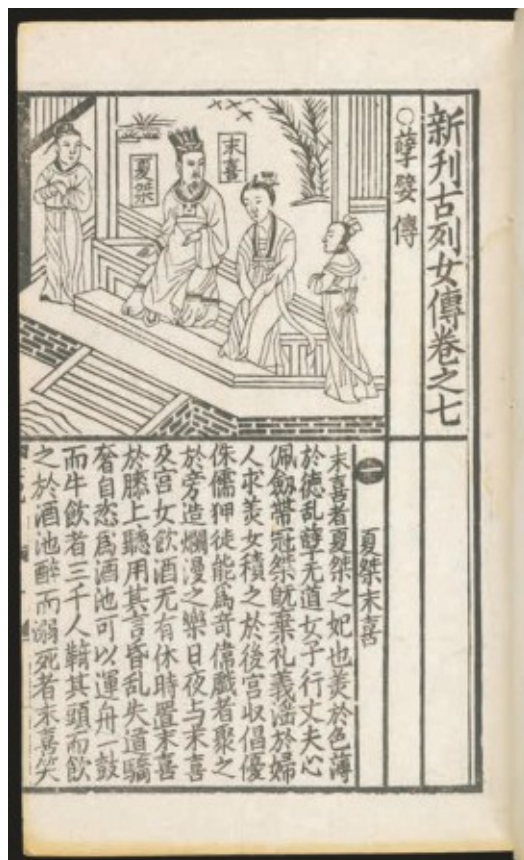 新刊古列女傳卷之七
○孽嬖傳
末喜
夏桀
一
夏桀末喜
末喜者夏桀之妃也羙於色薄
於德乱孽无道女子行丈夫心
佩劔帶冠桀旣棄礼義滛於婦
人求羙女積之於後宮収倡優
侏儒狎徒能爲奇偉戲者聚之
於旁造爛漫之樂日夜与末喜
及宮女飲酒无有休時置末喜
於膝上聽用其言昏乱失道驕
奢自恣爲酒池可以運舟一鼓
而牛飲者三千人䩭其頭而飲
之於酒池醉而溺死者末喜笑